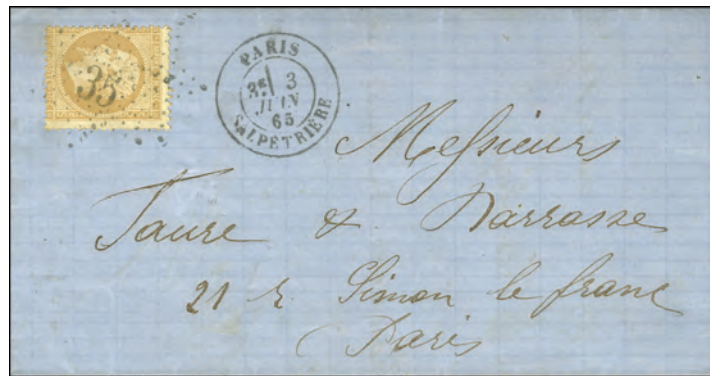 35
PARIS
3E 3
JUIN
65
SALPÉTRIÈRE
Messieurs
Faure & Darrasse
21 r. Simon le franc
Paris